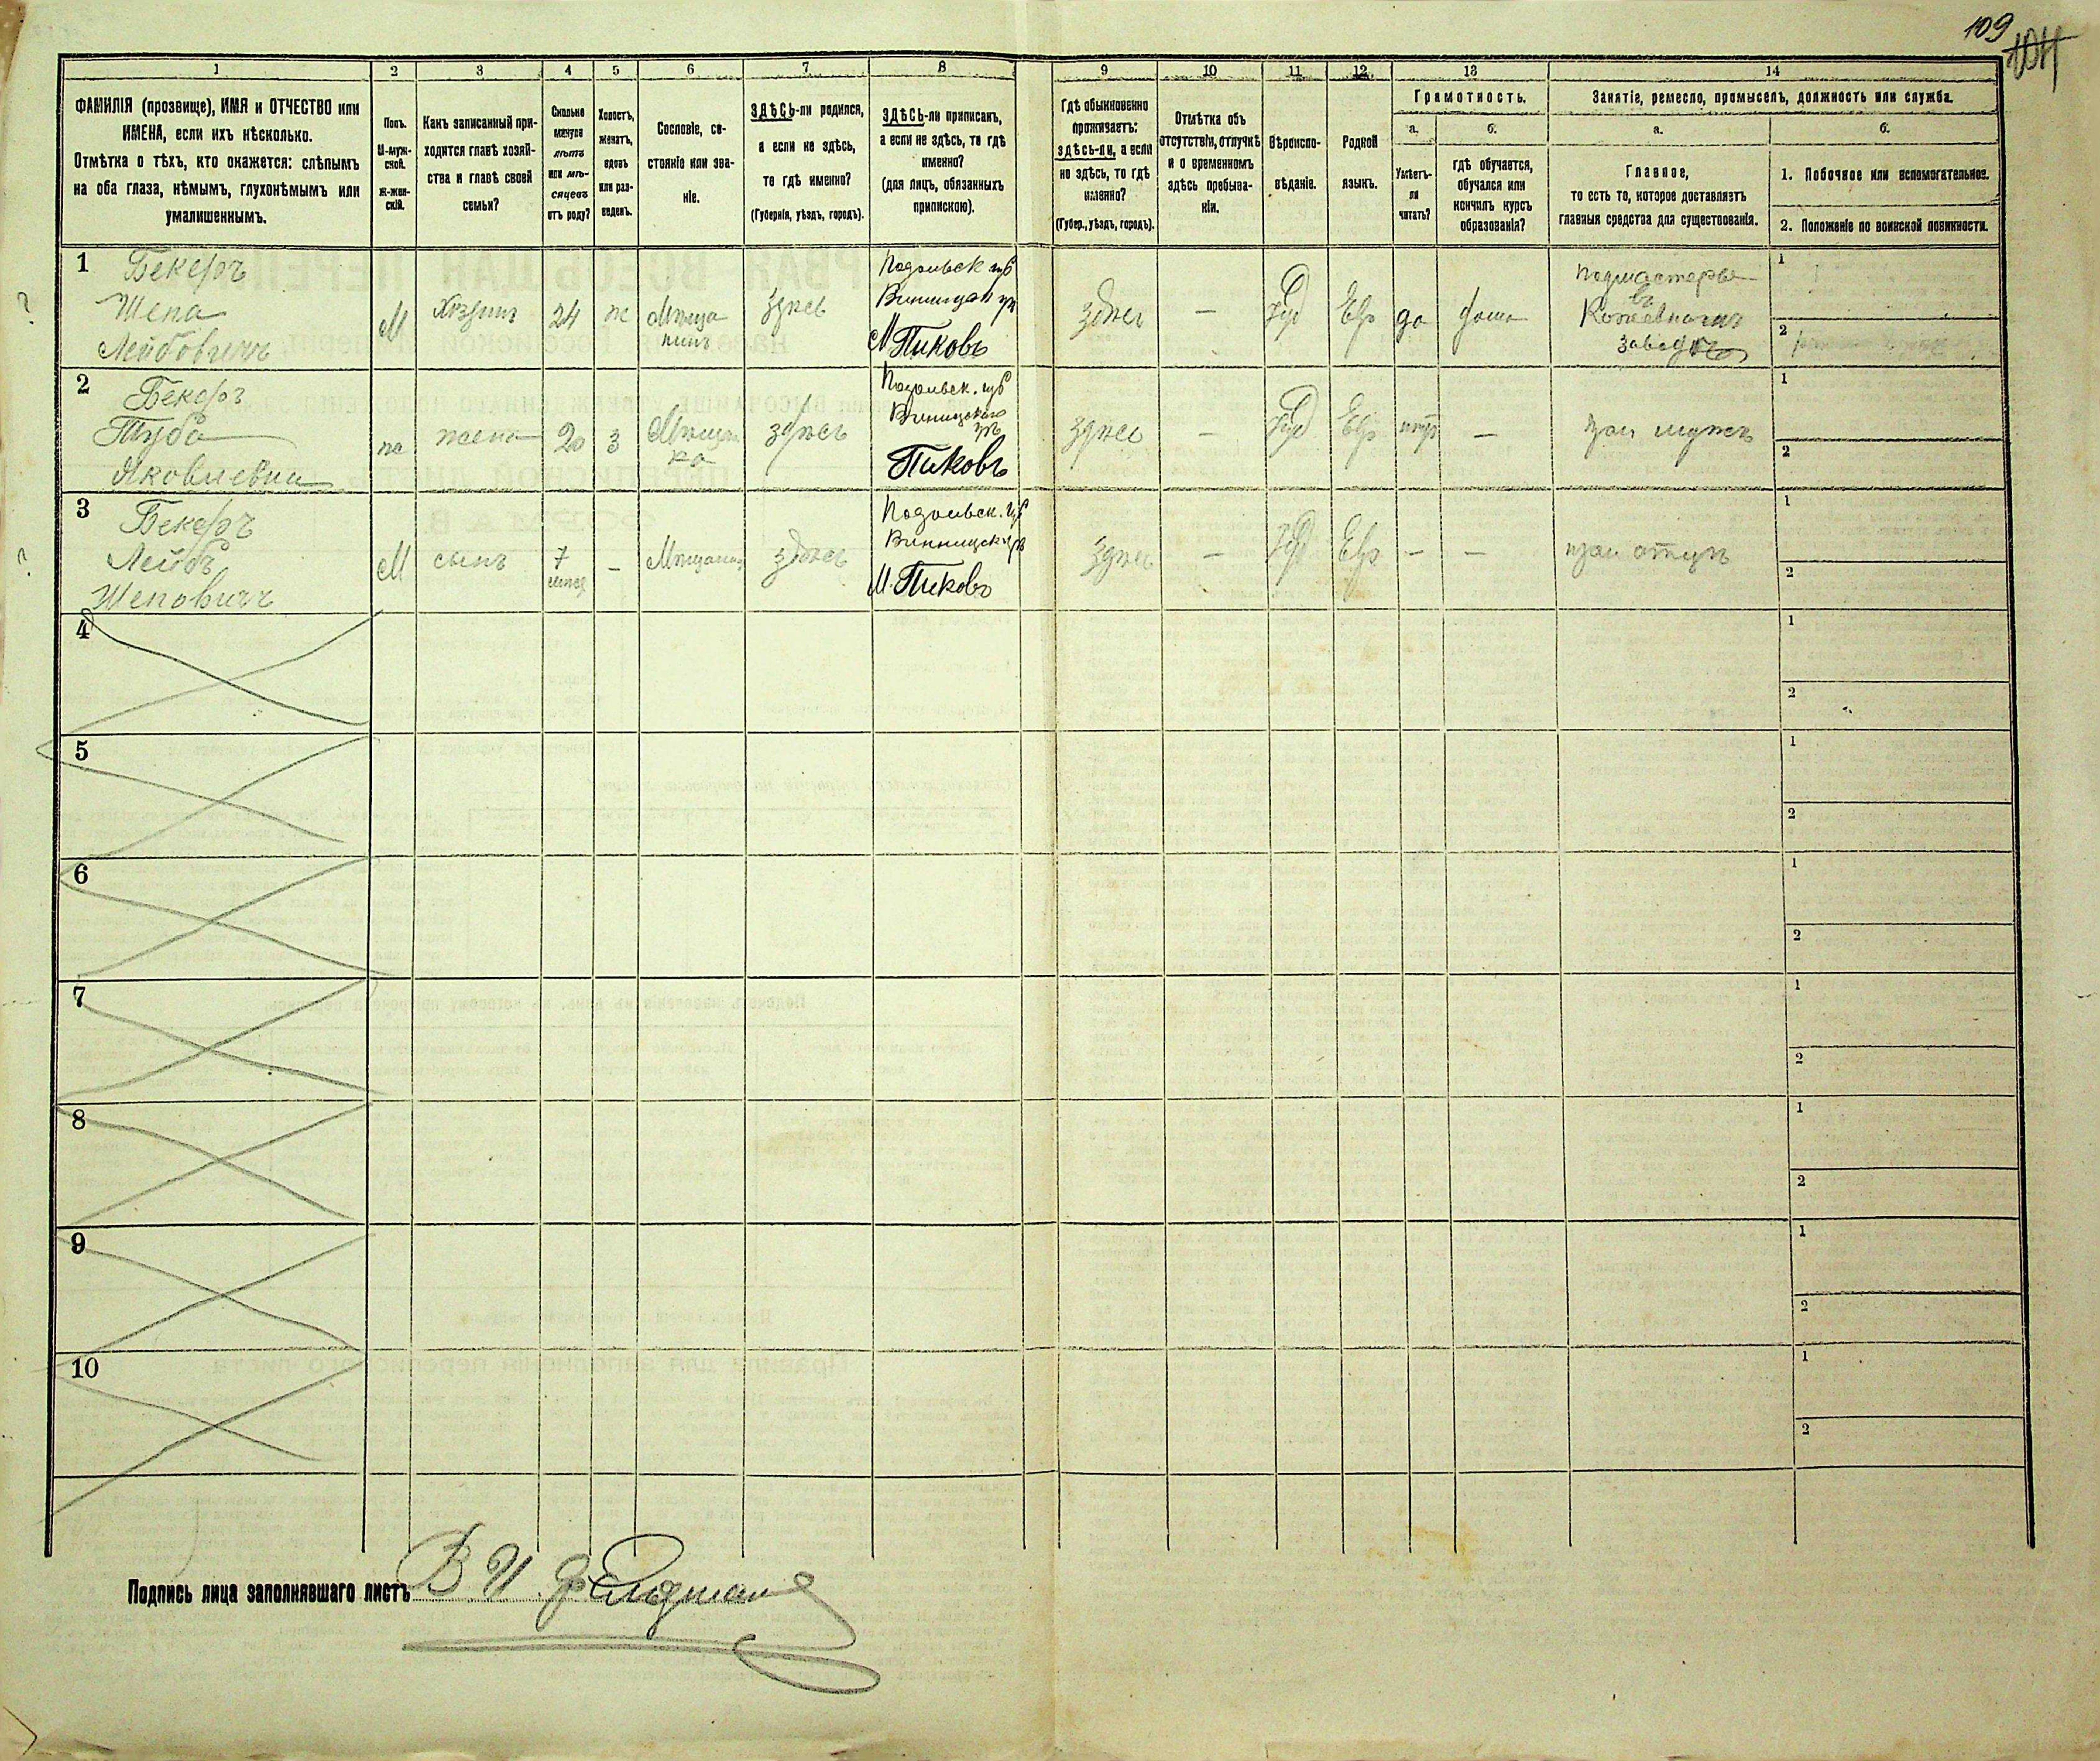 109
1
2
3
4
5
6
7
8
9
10
11
12
13
14
ФАМИЛІЯ (прозвище), ИМЯ и ОТЧЕСТВО или
ИМЕНА, если ихъ нѣсколько.
Отмѣтка о тѣхъ, кто окажется: слѣпымъ
на оба глаза, нѣмымъ, глухонѣмымъ или
умалишеннымъ.
Полъ.
М-муж-
ской.
Ж-жен-
скій.
Какъ записанный при-
ходится главѣ хозяй-
ства и главѣ своей
семьи?
Сколько
минуло
лѣтъ
или мѣ-
сяцевъ
отъ роду?
Холостъ,
женатъ,
вдовъ
или раз-
веденъ.
Сословіе, со-
стояніе или зва-
ніе.
ЗДѢСЬ-ли родился,
а если не здѣсь,
то гдѣ именно?
(Губернія, уѣздъ, городъ).
ЗДѢСЬ-ли приписанъ,
а если не здѣсь, то гдѣ
именно?
(для лицъ, обязанныхъ
припискою).
Гдѣ обыкновенно
проживаетъ:
здѣсь-ли, а если
не здѣсь, то гдѣ
именно?
(Губер., уѣздъ, городъ).
Отмѣтка объ
отсутствіи, отлучкѣ
и о временномъ
здѣсь пребыва-
ніи.
Вѣроиспо-
вѣданіе.
Родной
языкъ.
Грамотность.
а.
Умѣетъ-
ли
читать?
б.
гдѣ обучается,
обучался или
кончилъ курсъ
образованія?
Занятіе, ремесло, промыселъ, должность или служба.
а.
Главное,
то есть то, которое доставляетъ
главныя средства для существованія.
б.
1. Побочное или вспомогательное.
2. Положеніе по воинской повинности.
1
Бекеръ
Шепа
Лейбовичъ
М
Хозяинъ
24
ж
Мѣща
нинъ
здѣсь
Подольск губ
М Пиковъ
здѣсь
—
Іуд
Евр
да
дома
Подмастерье
въ
Кожевномъ
заводѣ
1
2
2
Бекеръ
Туба
Яковлевна
ж
жена
20
З
Мѣщан
ка
здѣсь
Подольск. губ
Винницкаго
уѣ
Пиковъ
здѣсь
—
Іуд
Евр
нѣтъ
—
при мужѣ
1
2
3
Бекеръ
Лейбъ
Шеповичъ
М
сынъ
7
мѣсяц
—
здѣсь
Подольск. губ
М. Пиковъ
здѣсь
—
Іуд
Евр
—
—
при отцѣ
1
2
4
1
2
5
1
2
6
1
2
7
1
2
8
1
2
9
1
2
10
1
2
Подпись лица заполнявшаго листъ В И Фельдман